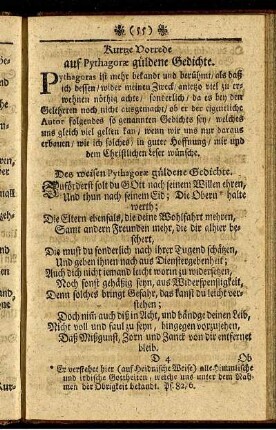 (55)
Kurtze Vorrede
auf Pythagoræ güldene Gedichte.
Pythagoras ist mehr bekandt und berühmt, als daß
ich dessen, wider meinen Zweck, anietzo viel zu er-
wehnen nöthig achte, sonderlich, da es bey den
Gelehrten noch nicht ausgemacht, ob er der eigentliche
Autor folgendes so genannten Gedichts sey, welches
uns gleich viel gelten kan, wenn wir uns nur daraus
erbauen, wie ich solches, in guter Hoffnung, mir und
dem Christlichen Leser wünsche.
Des weisen Pythagoræ güldene Gedichte.
Zuförderst solt du GOtt nach seinem Willen ehren,
Und thun nach seinem Eid; Die Obern * halte
werth;
Die Eltern ebenfals, die deine Wohlfahrt mehren,
Samt andern Freunden mehr, die dir allhier be-
schert.
Die must du sonderlich nach ihrer Tugend schätzen,
Und geben ihnen nach aus Dienstergebenheit;
Auch dich nicht iemand leicht worin zu widersetzen,
Noch sonst gehäßig seyn, aus Widerspenstigkeit,
Denn solches bringt Gefahr, das kanst du leicht ver-
stehen;
Doch nim auch diß in Acht, und bändge deinen Leib,
Nicht voll und faul zu seyn, hingegen vorzusehen,
Daß Mißgunst, Zorn und Zanck von dir entfernet
bleib.
D 4 Ob
* Er verstehet hier (auf Heidnische Weise) alle Himmlische
und irdische Gottheiten, welche uns unter dem Nah-
men der Obrigkeit bekandt. Ps. 82, 6.